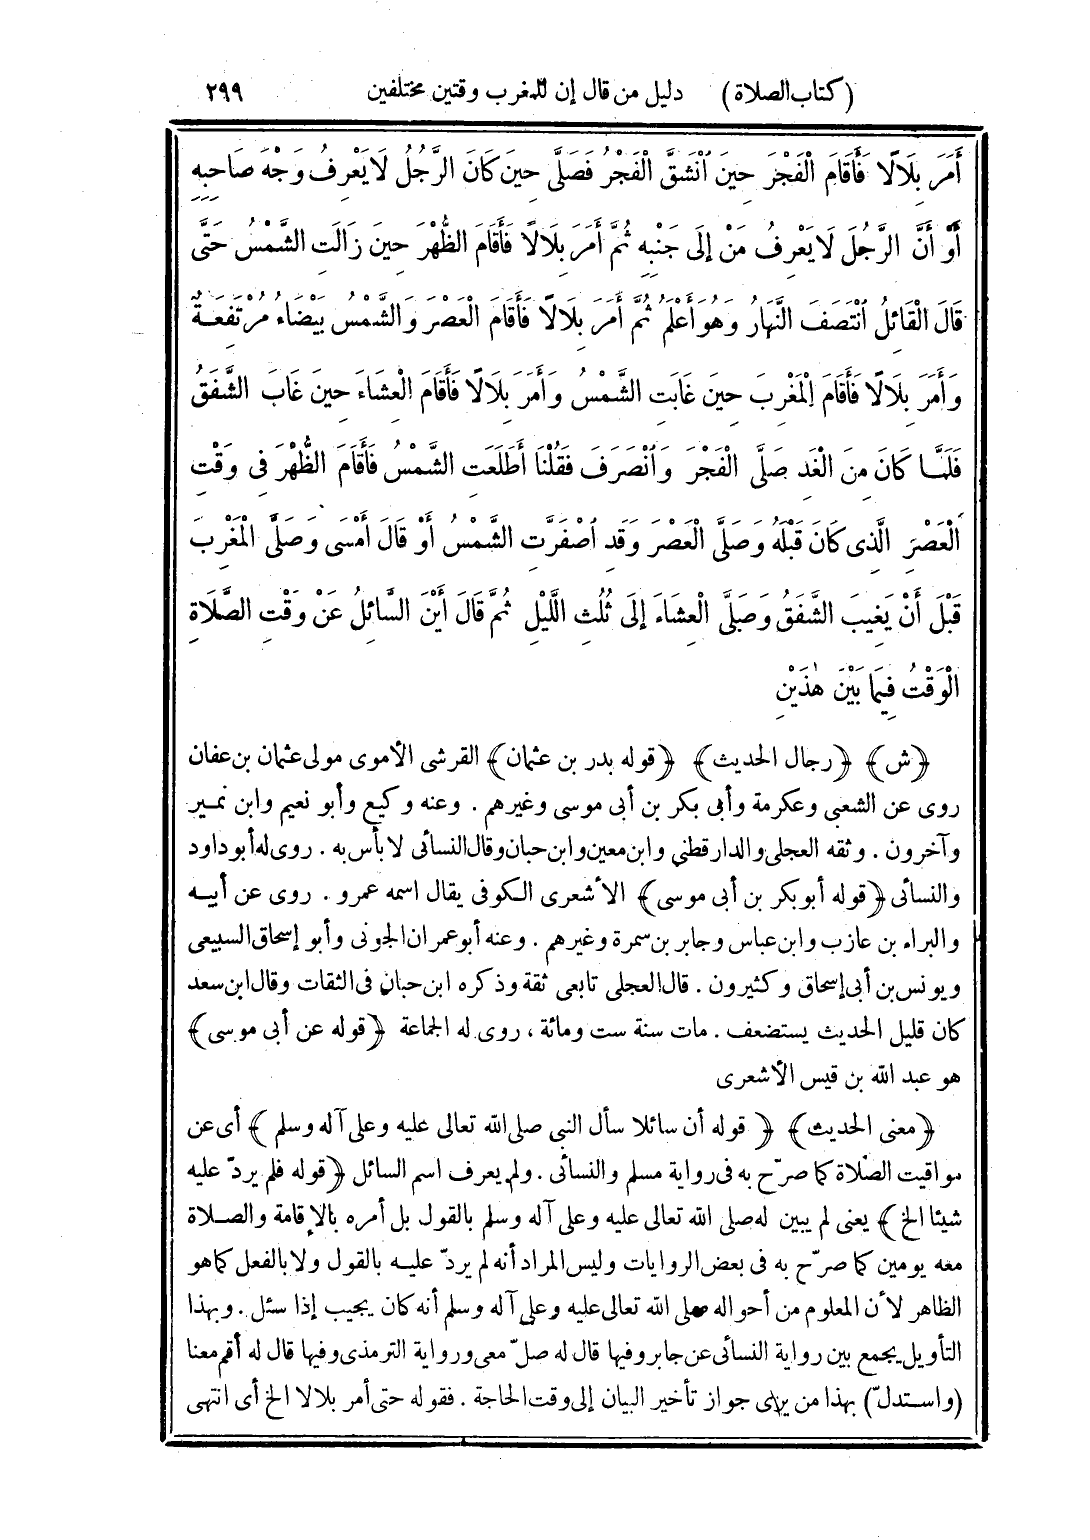 (كتاب الصلاة) دليل من قال إن للمغرب وقتين مختلفين ٢٩٩
أَمَرَ بِلَالًا فَأَقَامَ الْفَجْرَ حِينَ انْشَقَّ الْفَجْرُ فَصَلَّى حِينَ كَانَ الرَّجُلُ لَا يَعْرِفُ وَجْهَ صَاحِبِهِ
أَوْ أَنَّ الرَّجُلَ لَا يَعْرِفُ مَنْ إِلَى جَنْبِهِ ثُمَّ أَمَرَ بِلَالًا فَأَقَامَ الظُّهْرَ حِينَ زَالَتِ الشَّمْسُ حَتَّى
قَالَ الْقَائِلُ انْتَصَفَ النَّهَارُ وَهُوَ أَعْلَمُ ثُمَّ أَمَرَ بِلَالًا فَأَقَامَ الْعَصْرَ وَالشَّمْسُ بَيْضَاءُ مُرْتَفِعَةٌ
وَأَمَرَ بِلَالًا فَأَقَامَ الْمَغْرِبَ حِينَ غَابَتِ الشَّمْسُ وَأَمَرَ بِلَالًا فَأَقَامَ الْعِشَاءَ حِينَ غَابَ الشَّفَقُ
فَلَمَّا كَانَ مِنَ الْغَدِ صَلَّى الْفَجْرَ وَانْصَرَفَ فَقُلْنَا أَطَلَعَتِ الشَّمْسُ فَأَقَامَ الظُّهْرَ فِى وَقْتِ
الْعَصْرِ الَّذِى كَانَ قَبْلَهُ وَصَلَّى الْعَصْرَ وَقَدِ اصْفَرَّتِ الشَّمْسُ أَوْ قَالَ أَمْسَى وَصَلَّى الْمَغْرِبَ
قَبْلَ أَنْ يَغِيبَ الشَّفَقُ وَصَلَّى الْعِشَاءَ إِلَى ثُلُثِ اللَّيْلِ ثُمَّ قَالَ أَيْنَ السَّائِلُ عَنْ وَقْتِ الصَّلَاةِ
الْوَقْتُ فِيمَا بَيْنَ هٰذَيْنِ
﴿ش﴾ ﴿رجال الحديث﴾ ﴿قوله بدر بن عثمان﴾ القرشى الأموى مولى عثمان بن عفان
روى عن الشعبى وعكرمة وأبى بكر بن أبى موسى وغيرهم . وعنه وكيع وأبو نعيم وابن نمير
وآخرون . وثقه العجلى والدارقطني وابن معين وابن حبان وقال النسائى لا بأس به . روى له أبو داود
والنسائى ﴿قوله أبو بكر بن أبى موسى﴾ الأشعرى الكوفى يقال اسمه عمرو . روى عن أبيه
والبراء بن عازب وابن عباس وجابر بن سمرة وغيرهم . وعنه أبو عمران الجونى وأبو إسحاق السبيعى
ويونس بن أبى إسحاق وكثيرون . قال العجلى تابعى ثقة وذكره ابن حبان فى الثقات وقال ابن سعد
كان قليل الحديث يستضعف . مات سنة ست ومائة ، روى له الجماعة ﴿قوله عن أبى موسى﴾
هو عبد الله بن قيس الأشعرى
﴿معنى الحديث﴾ ﴿قوله أن سائلا سأل النبى صلى الله تعالى عليه وعلى آله وسلم﴾ أى عن
مواقيت الصلاة كما صرّح به فى رواية مسلم والنسائى . ولم يعرف اسم السائل ﴿قوله فلم يردّ عليه
شيئا الخ﴾ يعنى لم يبين له صلى الله تعالى عليه وعلى آله وسلم بالقول بل أمره بالإقامة والصلاة
معه يومين كما صرّح به فى بعض الروايات وليس المراد أنه لم يردّ عليه بالقول ولا بالفعل كما هو
الظاهر لأن المعلوم من أحواله صلى الله تعالى عليه وعلى آله وسلم أنه كان يجيب إذا سئل . وبهذا
التأويل يجمع بين رواية النسائى عن جابر وفيها قال له صلّ معى ورواية الترمذى وفيها قال له أقم معنا
(واستدلّ) بهذا من يرى جواز تأخير البيان إلى وقت الحاجة . فقوله حتى أمر بلالا الخ أى انتهى